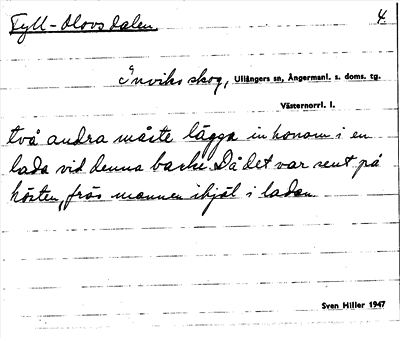 Fyll-Olovsdalen 4
Inviks skog, Ullångers sn, Ångermanl. s. doms. tg.
Västernorrl. l.
två andra måste lägga in honom i en
lada vid denna backe. Då det var sent på
hösten, frös mannen ihjäl i ladan.
Sven Hiller 1947